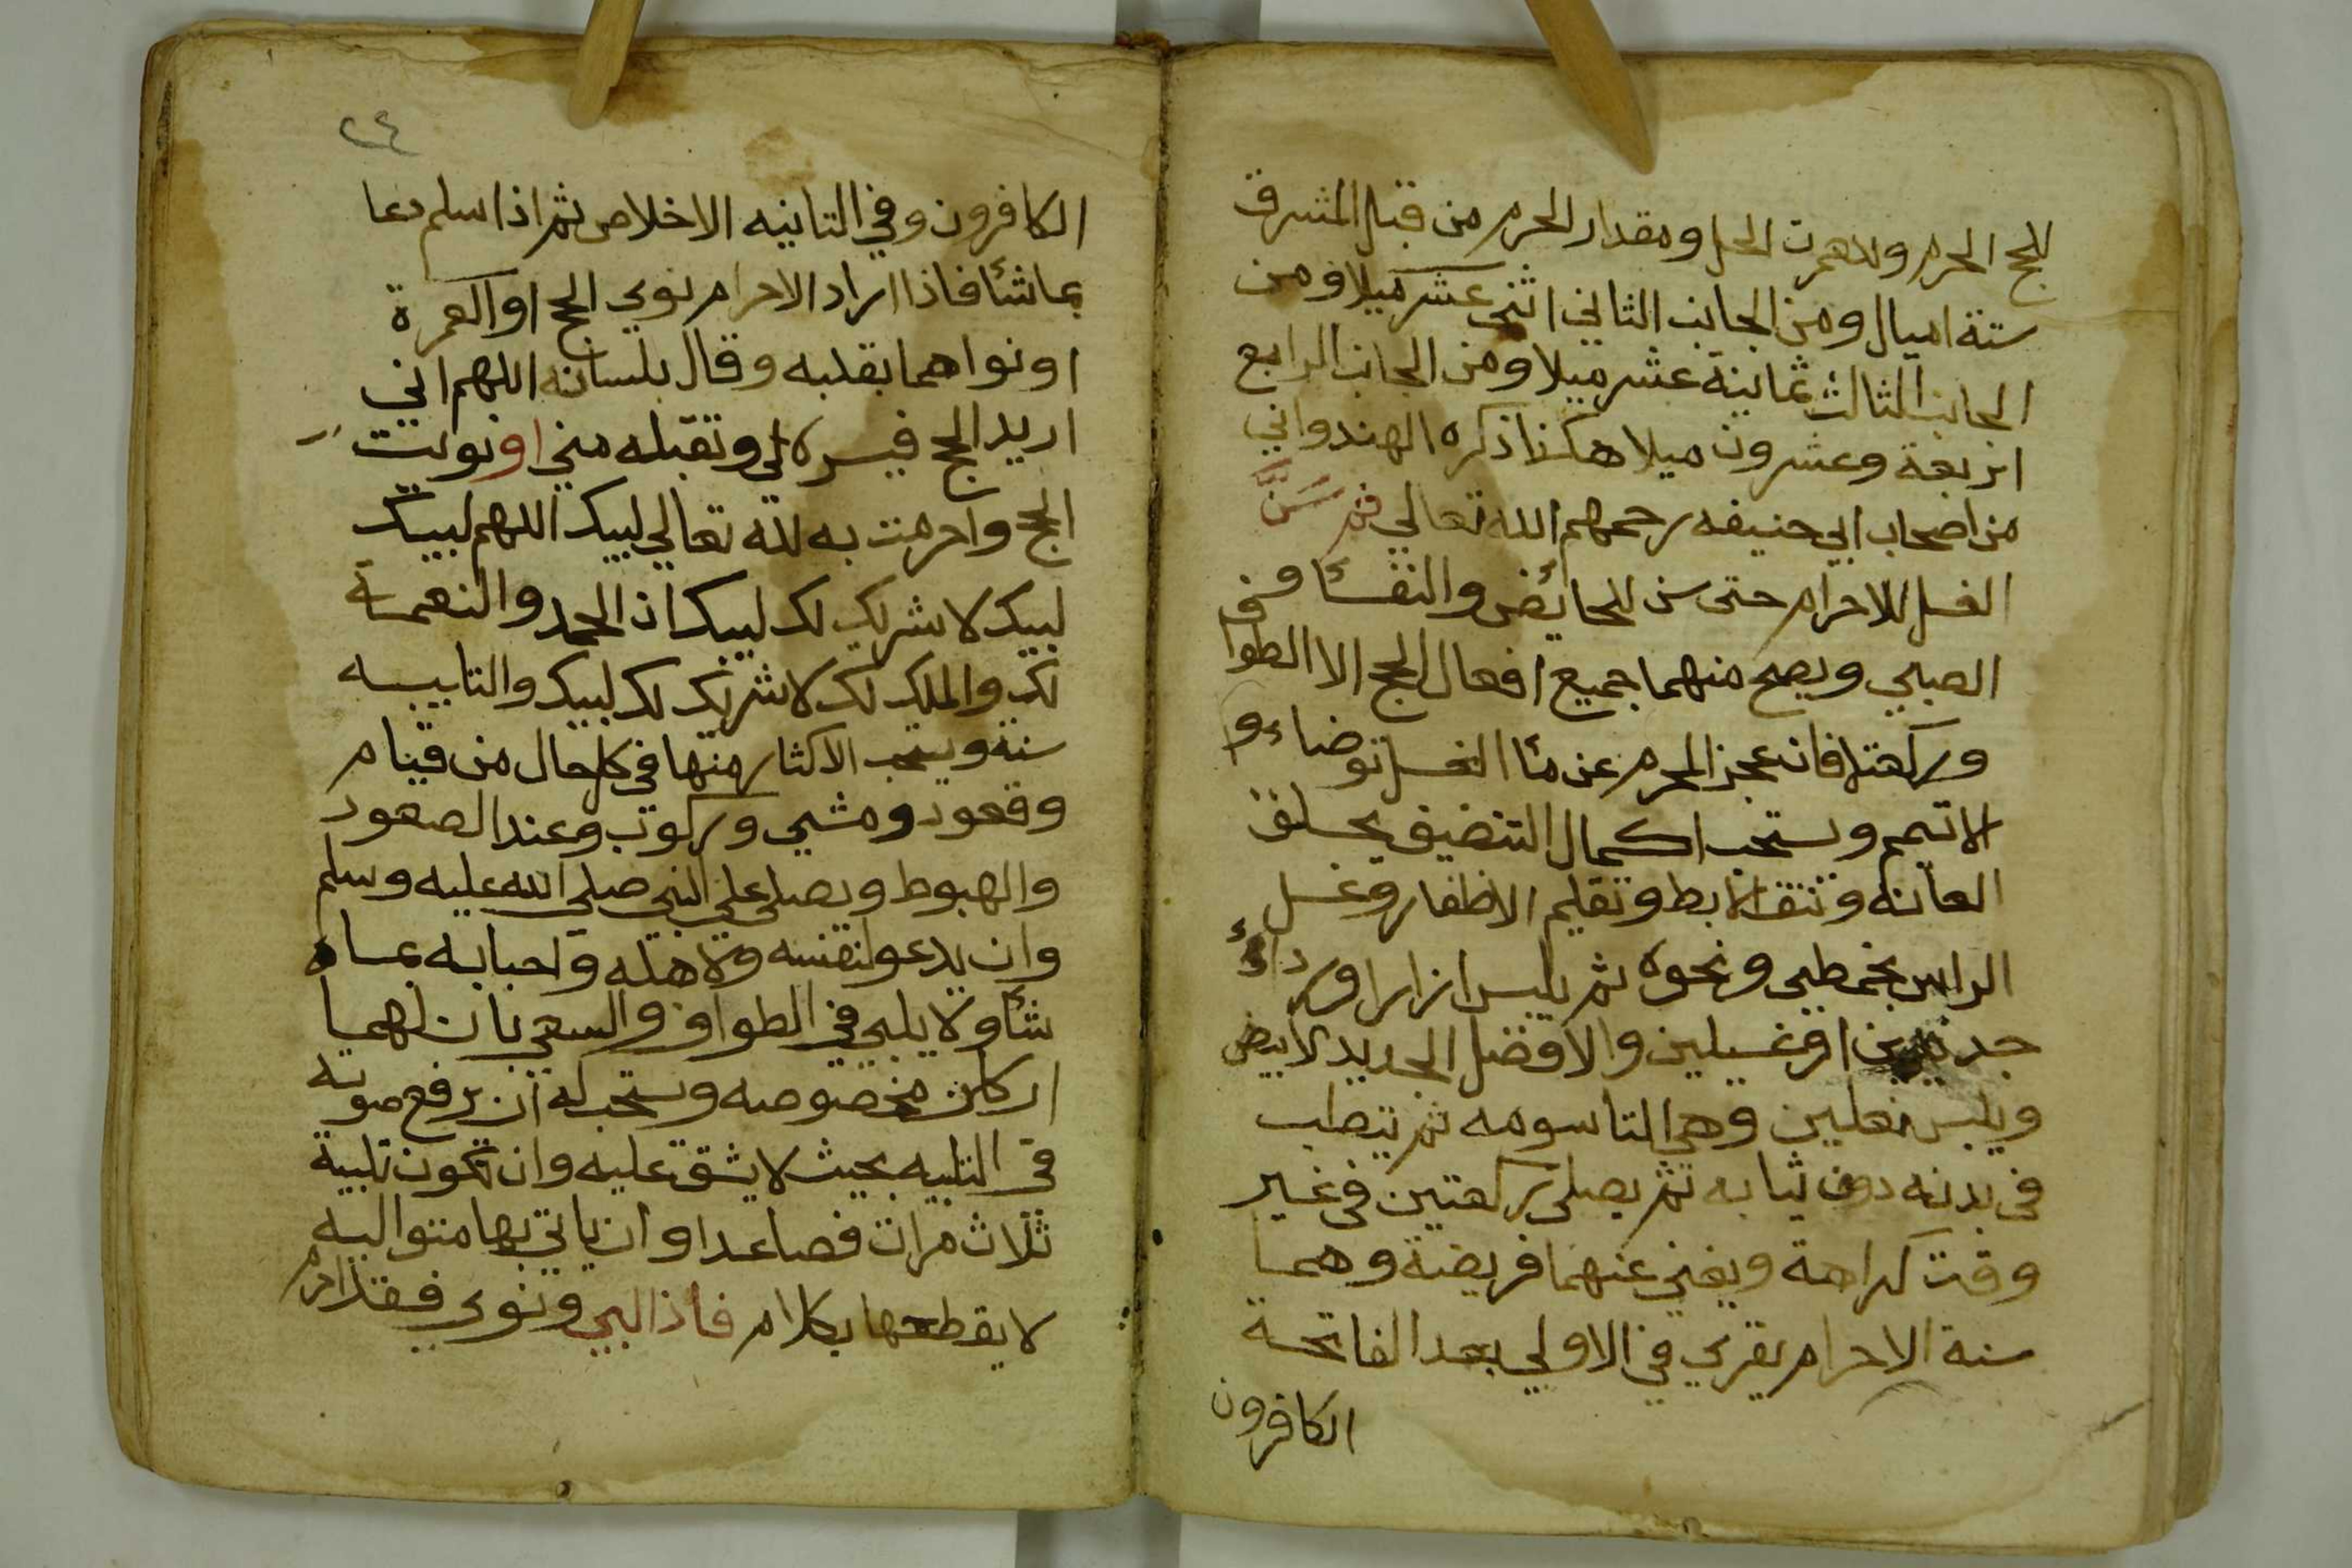 للحج الحرم وللعمرت الحل ومقدار الحرم من قبل المشرق
ستة اميال ومن الجانب الثاني اثني عشر ميلا ومن
الجانب الثالث ثمانية عشر ميلا ومن الجانب الرابع
اربعة وعشرون ميلا هكذا ذكره الهندواني
من اصحاب ابي حنيفه رحمهم الله تعالي ثم سَنَّ
الغسل للاحرام حتى سن للحائض والنفسأ وفي
الصبي ويصح منهما جميع افعال الحج الا الطوا
وركعتاه فان عجز المحرم عن مأ الغسل توضاء و
الا تيمم ويستحب اكمال التنضيف بحلق
العانه ونتف الابط وتقليم الاظفار وغسل
الراس بخطمي ونحوه ثم يلبس ازارا وردأ
جديدين او غسيلين والافضل الجديد الابيض
ويلبس نعلين وهي التاسومه ثم يتطيب
في بدنه دون ثيابه ثم يصلي ركعتين في غير
وقت كراهة ويغني عنهما فريضة وهما
سنة الاحرام يقري في الاولي بعد الفاتحة
الكافرون
٢٤
الكافرون وفي التانيه الاخلاص ثم اذا سلم دعا
بما شأ فاذا اراد الاحرام نوي الحج او العمرة
او نواهما بقلبه وقال بلسانه اللهم اني
اريد الحج فيسره لي وتقبله مني او نويت
الحج واحرمت به لله تعالي لبيك اللهم لبيك
لبيك لا شريك لك لبيك ان الحمد والنعمة
لك والملك لك لا شريك لك لبيك والتلبيه
سنه ويستحب الاكثار منها في كل حال من قيام
وقعود ومشي وركوب وعند الصعود
والهبوط ويصلي علي النبي صلي الله عليه وسلم
وان يدعو لنفسه ولاهله واحبابه بما
شأ ولا يلبي في الطواف والسعي بان لهما
اركان مخصوصه ويستحب له ان يرفع صوته
في التلبيه بحيث لا يشق عليه وان تكون تلبية
ثلاث مرات فصاعدا وان ياتي بها متواليه
لا يقطعها بكلام فاذا لبي ونوي فقد احرم